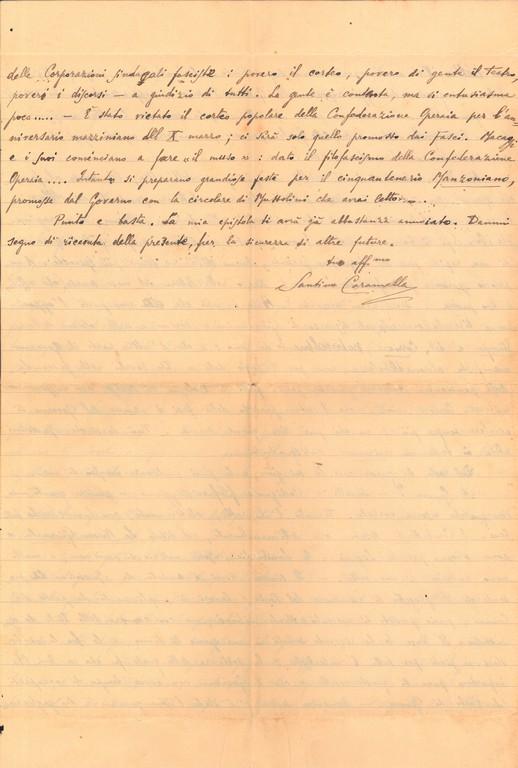 delle Corporazioni sindacali fasciste: povero il corteo, povero di gente il teatro,
poveri i discorsi — a giudizio di tutti. La gente è contenta, ma di entusiasmo
poca..... — È stato vietato il corteo popolare della Confederazione Operaia per l'an-
niversario mazziniano del X marzo; ci sarà solo quello promosso dai fasci. Macaggi
e i suoi cominciano a fare "il muso": dato il filofascismo della Confederazione
Operaia.... Intanto si preparano grandiose feste per il cinquantenario Manzoniano,
promosse dal Governo con la circolare di Mussolini che avrai letto.....
Punto e basta. La mia epistola ti avrà già abbastanza annoiato. Dammi
segno di ricevuta della presente, per la sicurezza di altre future.
tuo aff.mo
Santino Caramella